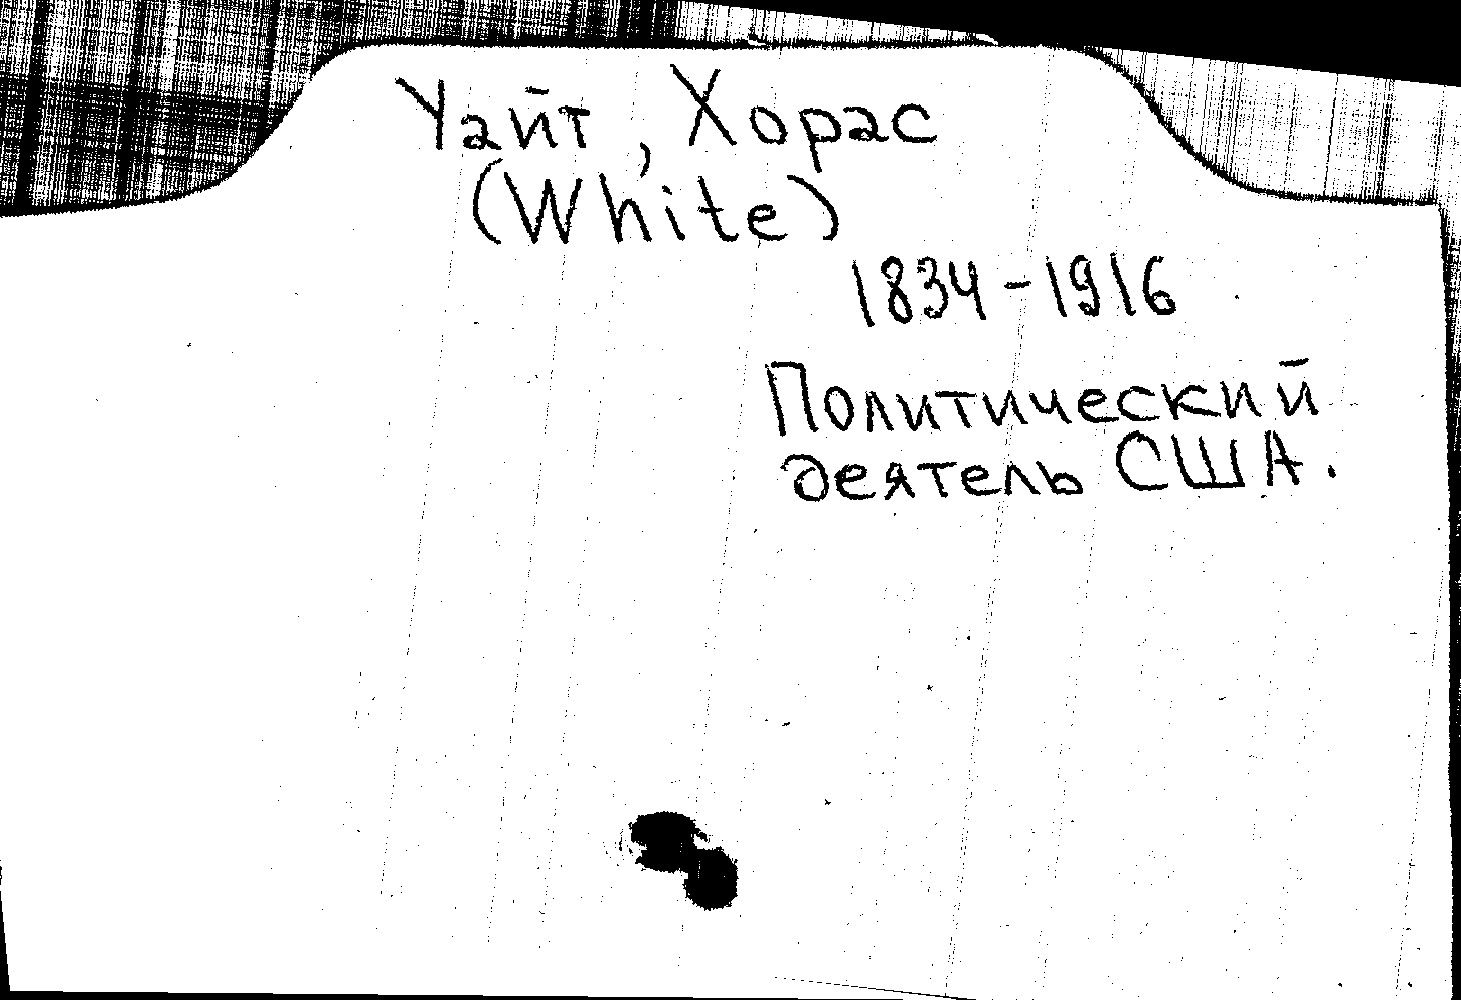 Уайт, Хорас
(White)
1834-1916
Политический
деятель США.